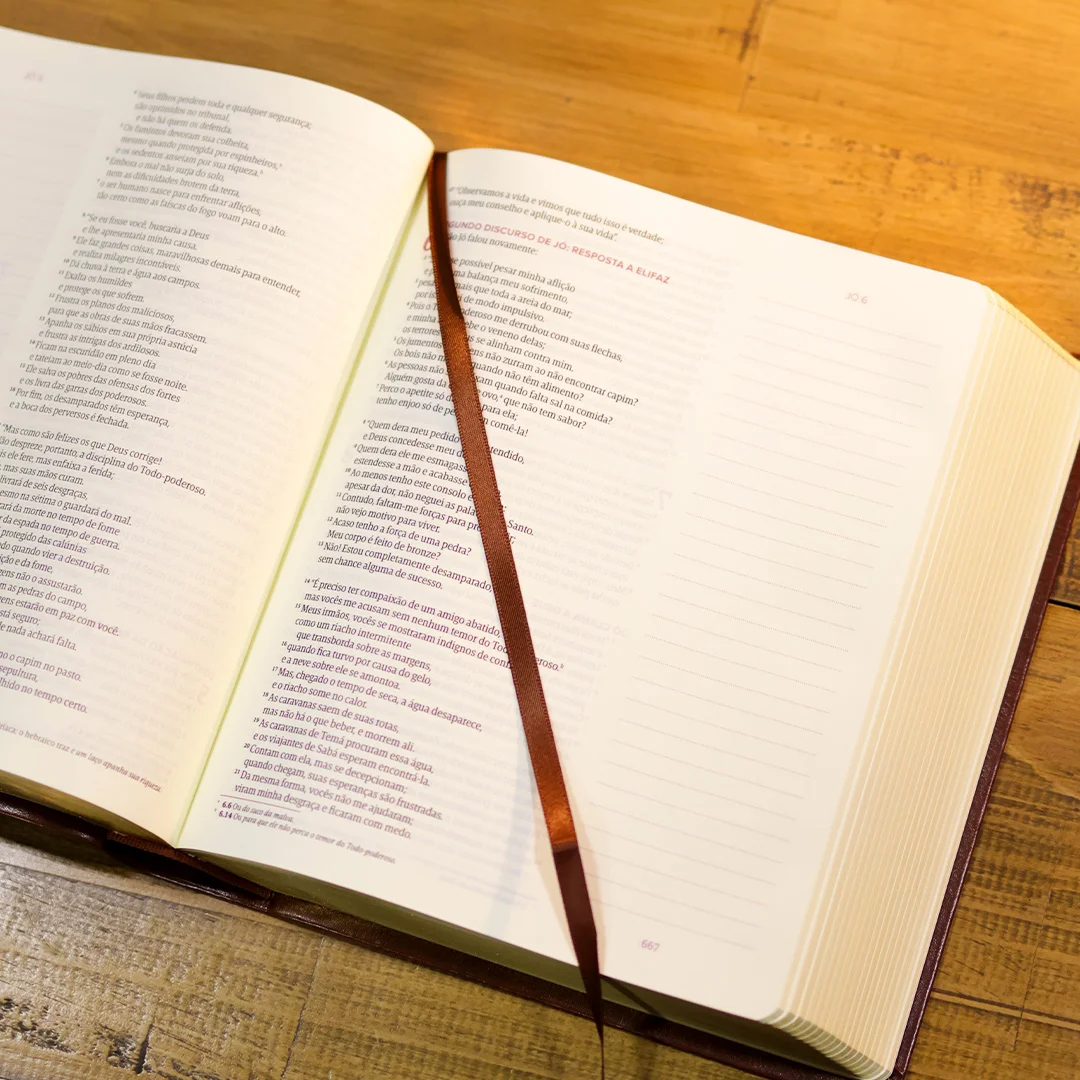 JÓ 5
⁴ Seus filhos perdem toda e qualquer segurança;
são oprimidos no tribunal,
e não há quem os defenda.
⁵ Os famintos devoram sua colheita,
mesmo quando protegida por espinheiros,
e os sedentos anseiam por sua riqueza.
⁶ Embora o mal não surja do solo,
nem as dificuldades brotem da terra,
⁷ o ser humano nasce para enfrentar aflições,
tão certo como as faíscas do fogo voam para o alto.
⁸ “Se eu fosse você, buscaria a Deus
e lhe apresentaria minha causa.
⁹ Ele faz grandes coisas, maravilhosas demais para entender,
e realiza milagres incontáveis.
¹⁰ Dá chuva à terra e água aos campos.
¹¹ Exalta os humildes
e protege os que sofrem.
¹² Frustra os planos dos maliciosos,
para que as obras de suas mãos fracassem.
¹³ Apanha os sábios em sua própria astúcia
e frustra as intrigas dos ardilosos.
¹⁴ Ficam na escuridão em pleno dia
e tateiam ao meio-dia como se fosse noite.
¹⁵ Ele salva os pobres das ofensas dos fortes
e os livra das garras dos poderosos.
¹⁶ Por fim, os desamparados têm esperança,
e a boca dos perversos é fechada.
“Mas como são felizes os que Deus corrige!
despreze, portanto, a disciplina do Todo-poderoso.
ele fere, mas enfaixa a ferida;
mas suas mãos curam.
livrará de seis desgraças,
mesmo na sétima o guardará do mal.
da morte no tempo de fome
da espada no tempo de guerra.
protegido das calúnias
quando vier a destruição.
e da fome,
não o assustarão.
as pedras do campo,
estarão em paz com você.
seguro;
nada achará falta.
o capim no pasto.
sepultura,
no tempo certo.
o hebraico traz e um laço apanha sua riqueza.
²⁷ “Observamos a vida e vimos que tudo isso é verdade;
ouça meu conselho e aplique-o à sua vida”.
DISCURSO DE JÓ: RESPOSTA A ELIFAZ
Jó falou novamente:
possível pesar minha aflição
balança meu sofrimento,
mais que toda a areia do mar;
por de modo impulsivo.
⁴ Pois o me derrubou com suas flechas,
e minha o veneno delas;
os terrores se alinham contra mim.
⁵ Os jumentos não zurram ao não encontrar capim?
Os bois não quando não têm alimento?
⁶ As pessoas não quando falta sal na comida?
Alguém gosta da ovo, que não tem sabor?
⁷ Perco o apetite só para ela;
tenho enjoo só de comê-la!
⁸ “Quem dera meu pedido
e Deus concedesse meu
⁹ Quem dera ele me
estendesse a mão e acabasse
¹⁰ Ao menos tenho este consolo
apesar da dor, não neguei as Santo.
¹¹ Contudo, faltam-me forças para
não vejo motivo para viver.
¹² Acaso tenho a força de uma pedra?
Meu corpo é feito de bronze?
¹³ Não! Estou completamente desamparado,
sem chance alguma de sucesso.
¹⁴ “É preciso ter compaixão de um amigo abatido,
mas vocês me acusam sem nenhum temor do
¹⁵ Meus irmãos, vocês se mostraram indignos de
como um riacho intermitente
que transborda sobre as margens,
¹⁶ quando fica turvo por causa do gelo,
e a neve sobre ele se amontoa.
¹⁷ Mas, chegado o tempo de seca, a água desaparece,
e o riacho some no calor.
¹⁸ As caravanas saem de suas rotas,
mas não há o que beber, e morrem ali.
¹⁹ As caravanas de Temá procuram essa água,
e os viajantes de Sabá esperam encontrá-la.
²⁰ Contam com ela, mas se decepcionam;
quando chegam, suas esperanças são frustradas.
²¹ Da mesma forma, vocês não me ajudaram;
viram minha desgraça e ficaram com medo.
6.6 Ou do suco da malva.
6.14 Ou para que ele não perca o temor do Todo-poderoso.
JÓ 6
667